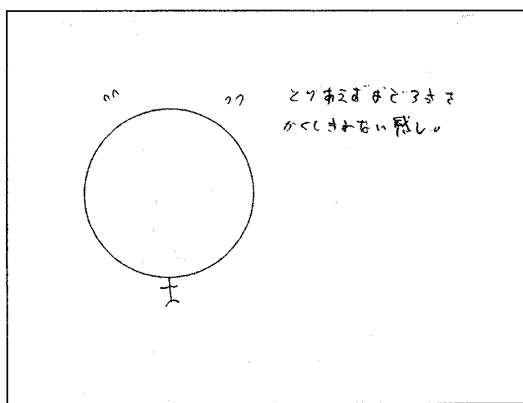 とりあえずおどろきを
かくしきれない感じ。